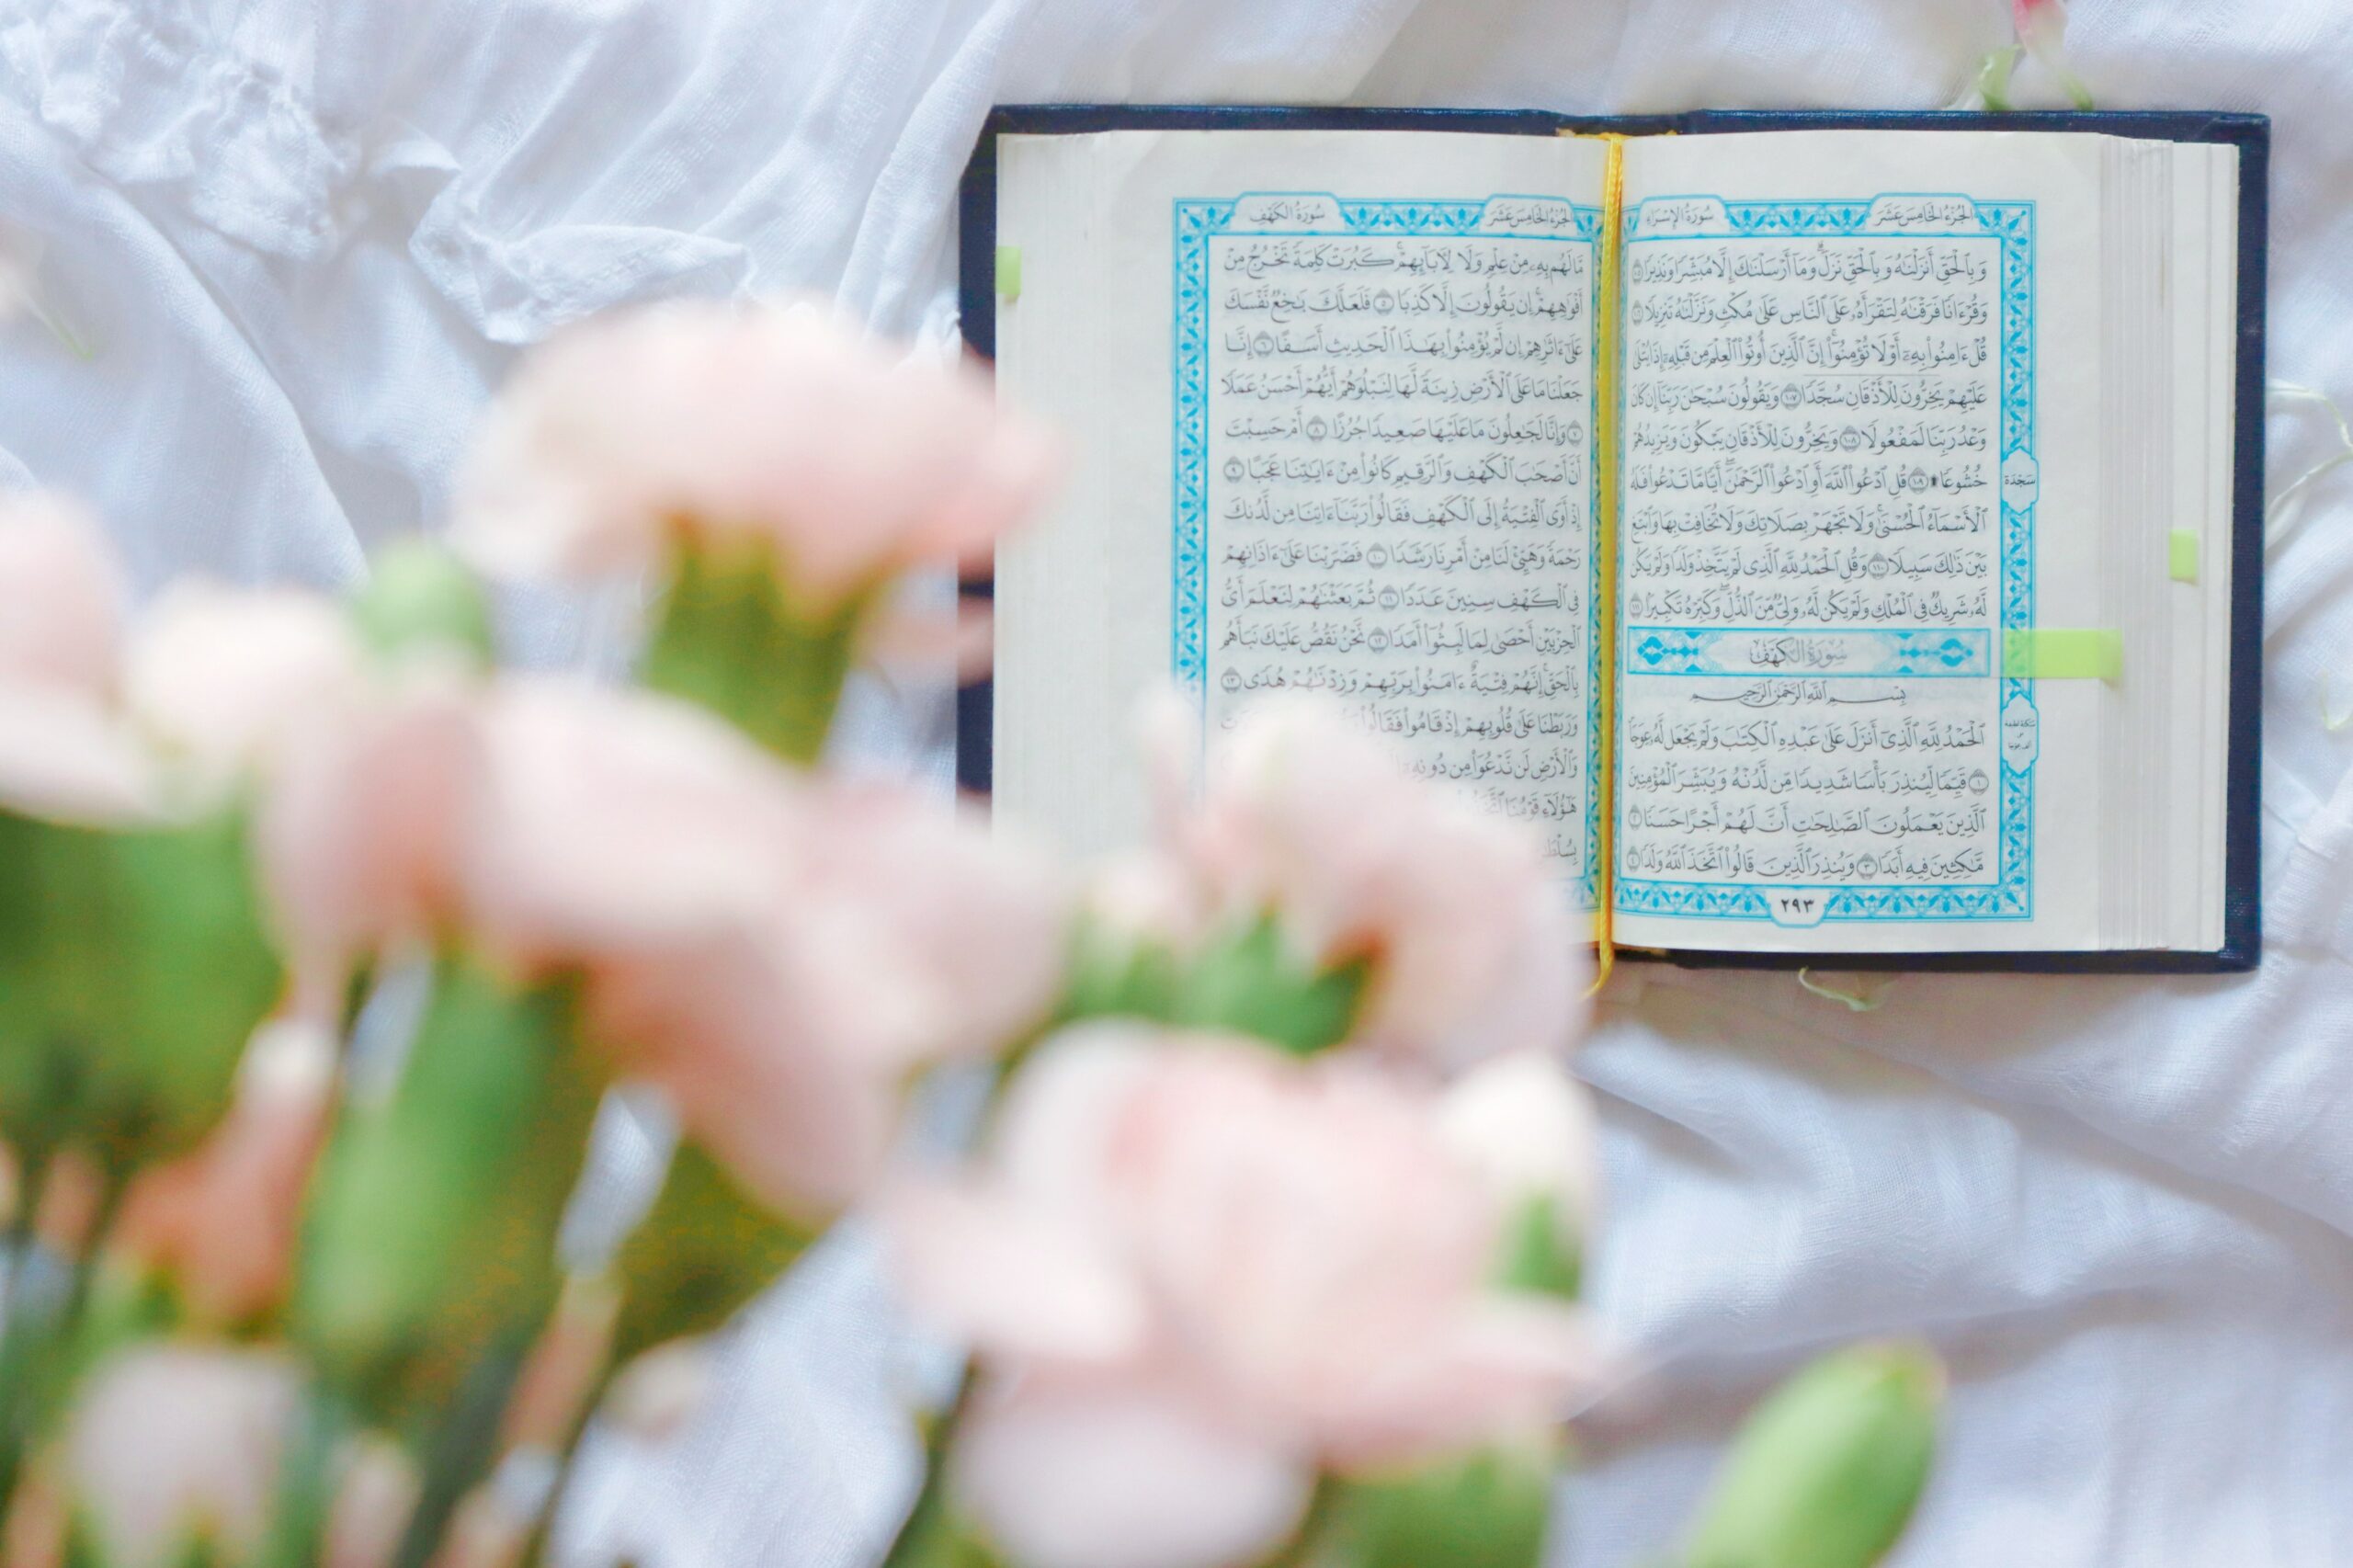 الجزء الخامس عشر
سورة الإسراء
وَبِٱلْحَقِّ أَنزَلْنَٰهُ وَبِٱلْحَقِّ نَزَلَ وَمَآ أَرْسَلْنَٰكَ إِلَّا مُبَشِّرًا وَنَذِيرًا ١٠٥
وَقُرْءَانًا فَرَقْنَٰهُ لِتَقْرَأَهُۥ عَلَى ٱلنَّاسِ عَلَىٰ مُكْثٍ وَنَزَّلْنَٰهُ تَنزِيلًا ١٠٦
قُلْ ءَامِنُوا۟ بِهِۦٓ أَوْ لَا تُؤْمِنُوٓا۟ إِنَّ ٱلَّذِينَ أُوتُوا۟ ٱلْعِلْمَ مِن قَبْلِهِۦٓ إِذَا يُتْلَىٰ
عَلَيْهِمْ يَخِرُّونَ لِلْأَذْقَانِ سُجَّدًا ١٠٧ وَيَقُولُونَ سُبْحَٰنَ رَبِّنَآ إِن كَانَ
وَعْدُ رَبِّنَا لَمَفْعُولًا ١٠٨ وَيَخِرُّونَ لِلْأَذْقَانِ يَبْكُونَ وَيَزِيدُهُمْ
خُشُوعًا ۩ ١٠٩ قُلِ ٱدْعُوا۟ ٱللَّهَ أَوِ ٱدْعُوا۟ ٱلرَّحْمَٰنَ أَيًّا مَّا تَدْعُوا۟ فَلَهُ
سَجْدَة
ٱلْأَسْمَآءُ ٱلْحُسْنَىٰ وَلَا تَجْهَرْ بِصَلَاتِكَ وَلَا تُخَافِتْ بِهَا وَٱبْتَغِ
بَيْنَ ذَٰلِكَ سَبِيلًا ١١٠ وَقُلِ ٱلْحَمْدُ لِلَّهِ ٱلَّذِى لَمْ يَتَّخِذْ وَلَدًا وَلَمْ يَكُن
لَّهُۥ شَرِيكٌ فِى ٱلْمُلْكِ وَلَمْ يَكُن لَّهُۥ وَلِىٌّ مِّنَ ٱلذُّلِّ وَكَبِّرْهُ تَكْبِيرًا ١١١
سُورَةُ الكَهْفِ
بِسْمِ ٱللَّهِ ٱلرَّحْمَٰنِ ٱلرَّحِيمِ
ٱلْحَمْدُ لِلَّهِ ٱلَّذِىٓ أَنزَلَ عَلَىٰ عَبْدِهِ ٱلْكِتَٰبَ وَلَمْ يَجْعَل لَّهُۥ عِوَجَا
١ قَيِّمًا لِّيُنذِرَ بَأْسًا شَدِيدًا مِّن لَّدُنْهُ وَيُبَشِّرَ ٱلْمُؤْمِنِينَ
ٱلَّذِينَ يَعْمَلُونَ ٱلصَّٰلِحَٰتِ أَنَّ لَهُمْ أَجْرًا حَسَنًا ٢
مَّٰكِثِينَ فِيهِ أَبَدًا ٣ وَيُنذِرَ ٱلَّذِينَ قَالُوا۟ ٱتَّخَذَ ٱللَّهُ وَلَدًا ٤
٢٩٣
الجزء الخامس عشر
سورة الكهف
مَّا لَهُم بِهِۦ مِنْ عِلْمٍ وَلَا لِءَابَآئِهِمْ كَبُرَتْ كَلِمَةً تَخْرُجُ مِنْ
أَفْوَٰهِهِمْ إِن يَقُولُونَ إِلَّا كَذِبًا ٥ فَلَعَلَّكَ بَٰخِعٌ نَّفْسَكَ
عَلَىٰٓ ءَاثَٰرِهِمْ إِن لَّمْ يُؤْمِنُوا۟ بِهَٰذَا ٱلْحَدِيثِ أَسَفًا ٦ إِنَّا
جَعَلْنَا مَا عَلَى ٱلْأَرْضِ زِينَةً لَّهَا لِنَبْلُوَهُمْ أَيُّهُمْ أَحْسَنُ عَمَلًا
٧ وَإِنَّا لَجَٰعِلُونَ مَا عَلَيْهَا صَعِيدًا جُرُزًا ٨ أَمْ حَسِبْتَ
أَنَّ أَصْحَٰبَ ٱلْكَهْفِ وَٱلرَّقِيمِ كَانُوا۟ مِنْ ءَايَٰتِنَا عَجَبًا ٩
إِذْ أَوَى ٱلْفِتْيَةُ إِلَى ٱلْكَهْفِ فَقَالُوا۟ رَبَّنَآ ءَاتِنَا مِن لَّدُنكَ
رَحْمَةً وَهَيِّئْ لَنَا مِنْ أَمْرِنَا رَشَدًا ١٠ فَضَرَبْنَا عَلَىٰٓ ءَاذَانِهِمْ
فِى ٱلْكَهْفِ سِنِينَ عَدَدًا ١١ ثُمَّ بَعَثْنَٰهُمْ لِنَعْلَمَ أَىُّ
ٱلْحِزْبَيْنِ أَحْصَىٰ لِمَا لَبِثُوٓا۟ أَمَدًا ١٢ نَّحْنُ نَقُصُّ عَلَيْكَ نَبَأَهُم
بِٱلْحَقِّ إِنَّهُمْ فِتْيَةٌ ءَامَنُوا۟ بِرَبِّهِمْ وَزِدْنَٰهُمْ هُدًى ١٣
وَرَبَطْنَا عَلَىٰ قُلُوبِهِمْ إِذْ قَامُوا۟ فَقَالُوا۟
وَٱلْأَرْضِ لَن نَّدْعُوَا۟ مِن دُونِهِۦٓ
هَٰٓؤُلَآءِ قَوْمُنَا